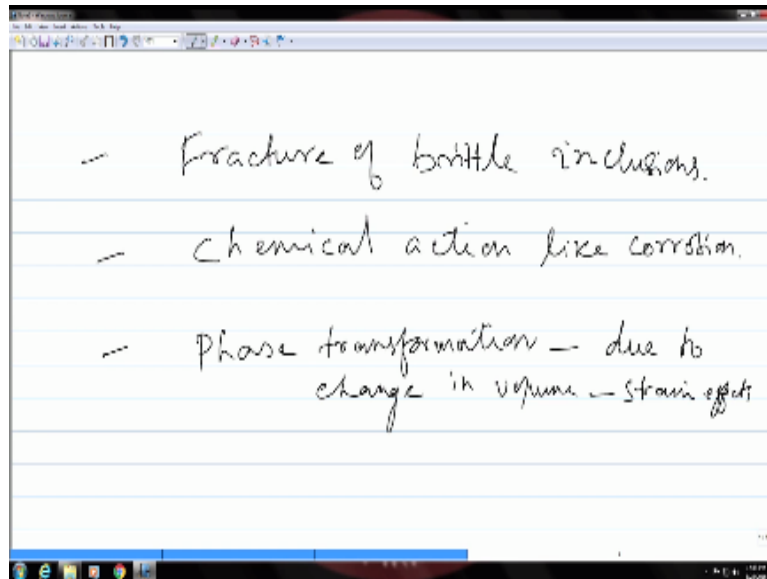 – Fracture of brittle inclusions.
– Chemical action like corrosion.
– Phase transformation – due to
change in volume – strain effects